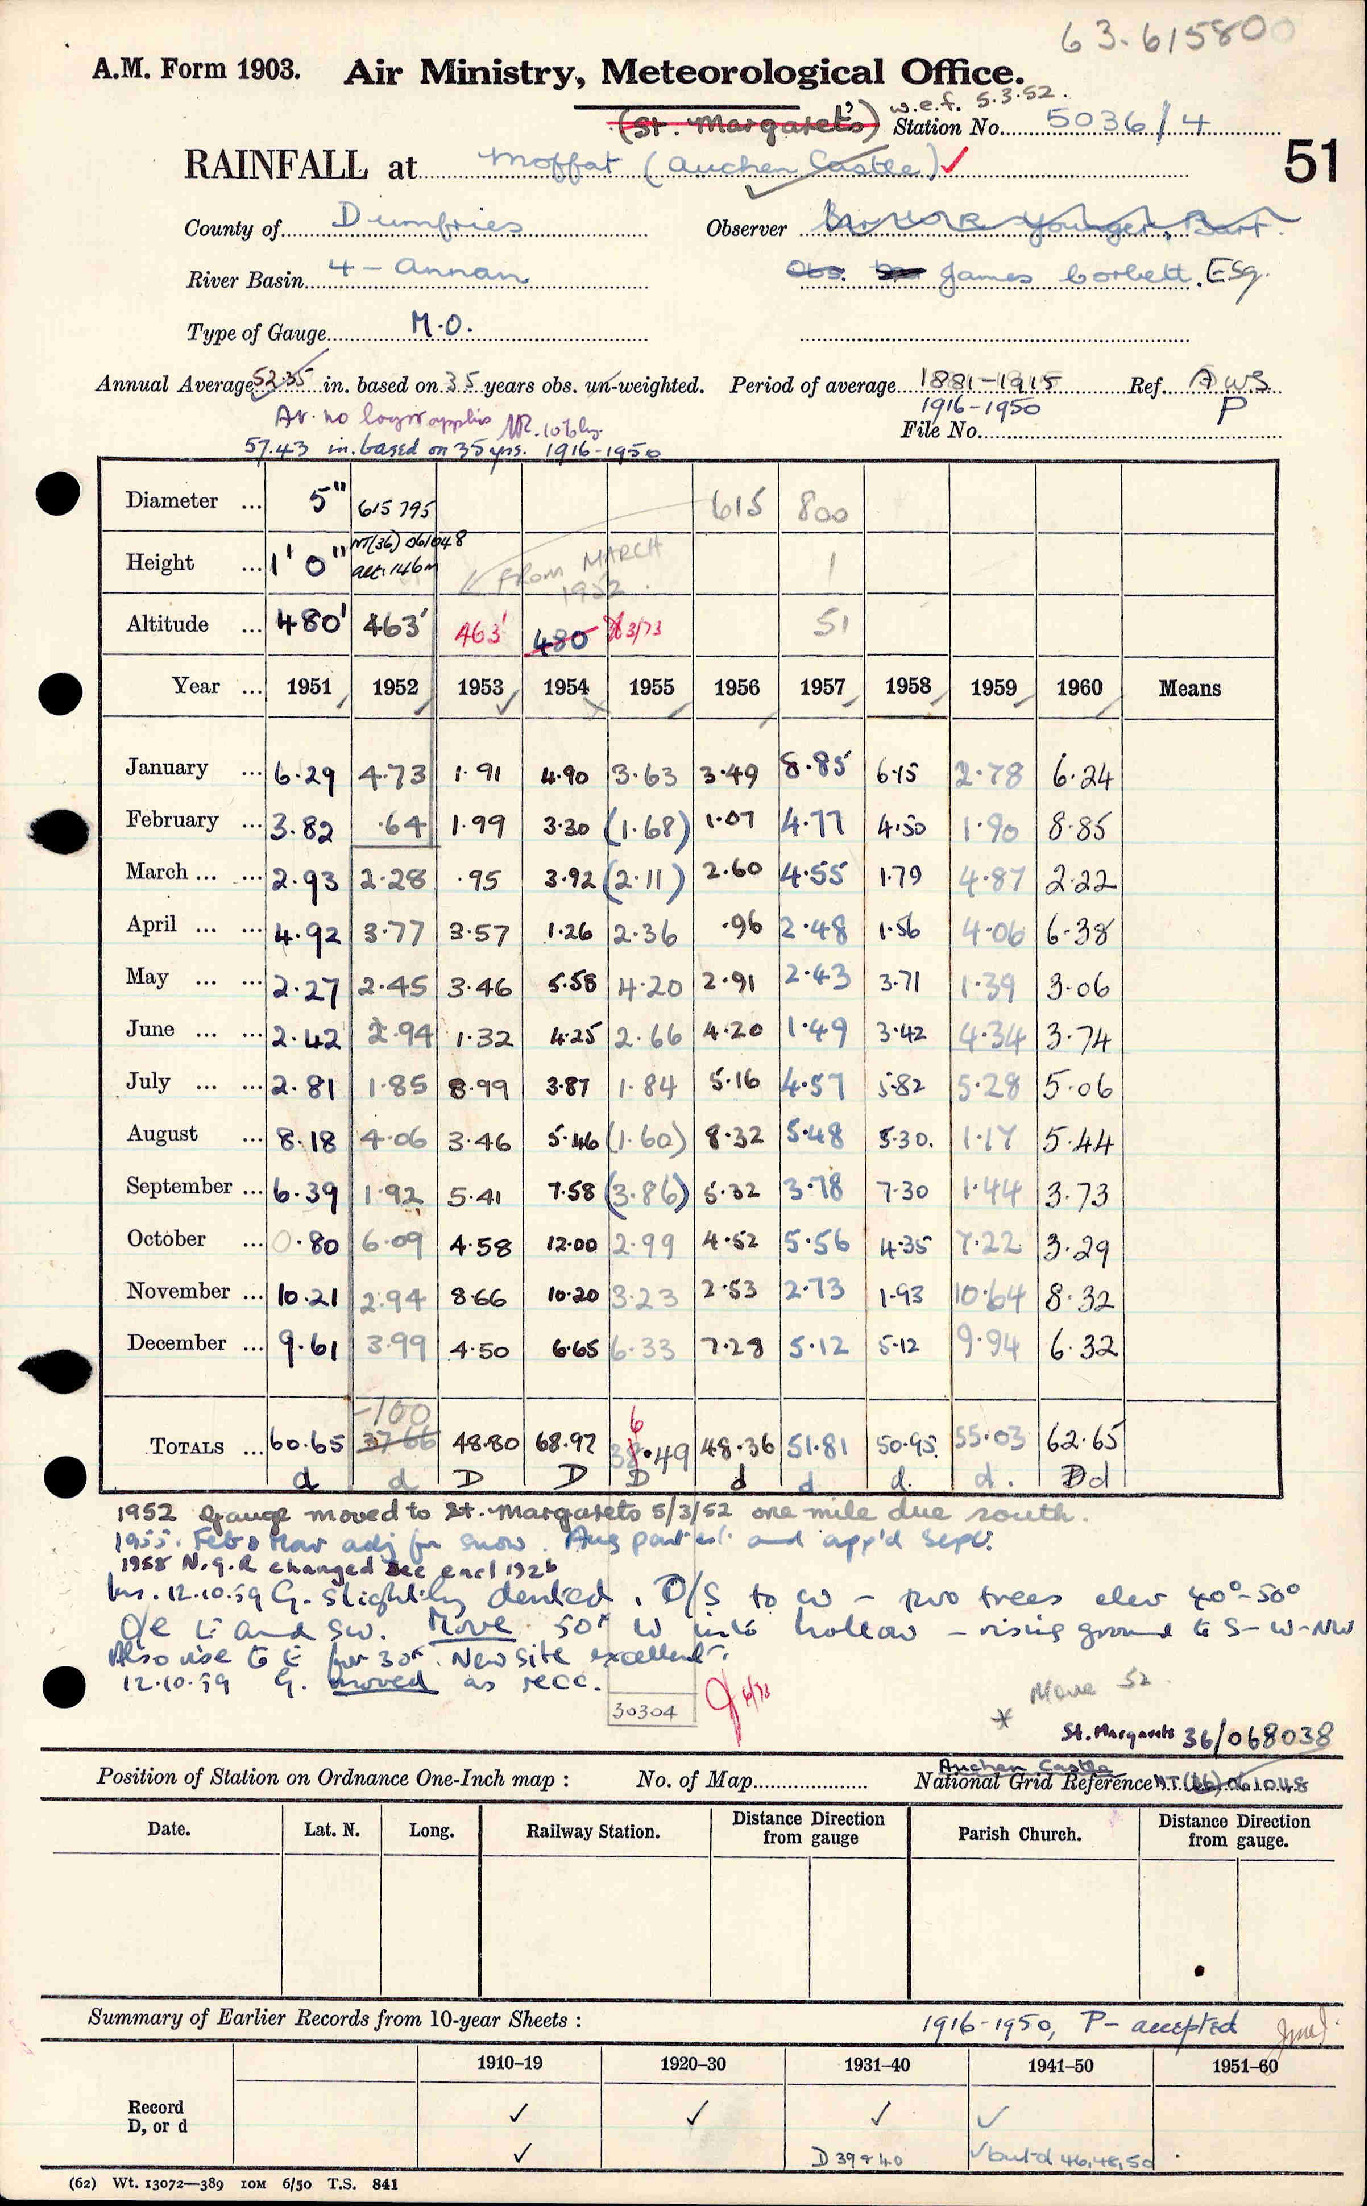 63.615800
A.M. Form 1903. Air Ministry, Meteorological Office.
w.e.f. 5.3.52.
(St. Margaret's) Station No. 5036/4
RAINFALL at Moffat (Auchen Castle) ✓
51
County of Dumfries Observer Younger, Bart.
River Basin 4 - Annan Obs. James Corbett, Esq.
Type of Gauge M.O.
Annual Average 52.35 in. based on 35 years obs. un-weighted. Period of average 1881-1915 Ref. AWS
1916-1950 P
Av. no longer applies
File No.
57.43 in. based on 35 yrs. 1916-1950
Diameter ... 5" 615795 615 800
Height ... 1' 0" NT(36) 061048 alt. 146m FROM MARCH 1952. 1
Altitude ... 480' 463' 463' 480 3/73 51
Year ... 1951 1952 1953 1954 1955 1956 1957 1958 1959 1960 Means
January ... 6.29 4.73 1.91 4.90 3.63 3.49 8.85 6.15 2.78 6.24
February ... 3.82 .64 1.99 3.30 (1.68) 1.07 4.77 4.50 1.90 8.85
March ... ... 2.93 2.28 .95 3.92 (2.11) 2.60 4.55 1.79 4.87 2.22
April ... ... 4.92 3.77 3.57 1.26 2.36 .96 2.48 1.56 4.06 6.38
May ... ... 2.27 2.45 3.46 5.58 4.20 2.91 2.43 3.71 1.39 3.06
June ... ... 2.42 2.94 1.32 4.25 2.66 4.20 1.49 3.42 4.34 3.74
July ... ... 2.81 1.85 8.99 3.87 1.84 5.16 4.57 5.82 5.28 5.06
August ... 8.18 4.06 3.46 5.46 (1.60) 8.32 5.48 5.30. 1.17 5.44
September ... 6.39 1.92 5.41 7.58 (3.86) 5.32 3.78 7.30 1.44 3.73
October ... 0.80 6.09 4.58 12.00 2.99 4.52 5.56 4.35 7.22 3.29
November ... 10.21 2.94 8.66 10.20 3.23 2.53 2.73 1.93 10.64 8.32
December ... 9.61 3.99 4.50 6.65 6.33 7.28 5.12 5.12 9.94 6.32
-100 6
TOTALS ... 60.65 37.66 48.80 68.97 38.49 48.36 51.81 50.95. 55.03 62.65
d d D D D d d d. d. Dd
1952 Gauge moved to St. Margarets 5/3/52 one mile due south.
1955. Feb & Mar adj for snow. Aug part est. and app'd Sept.
1958 N.G.R changed see encl 192b
Ins. 12.10.59 G. slightly dented. O/S to W - two trees elev 40°-50°
O/e E and SW. Move 50ft W into hollow - rising ground to S-W-NW
Also rise to E for 30ft. New site excellent.
12.10.59 G. moved as recc.
30304
Move 52
* St. Margarets 36/068038
Auchen Castle
Position of Station on Ordnance One-Inch map : No. of Map National Grid Reference NT(36) 061048
Date. Lat. N. Long. Railway Station. Distance Direction from gauge Parish Church. Distance Direction from gauge.
Summary of Earlier Records from 10-year Sheets : 1916-1950, P- accepted
1910–19 1920–30 1931–40 1941–50 1951–60
Record ✓ ✓ ✓ ✓
D, or d
✓ D 39 & 40 ✓ but d 46,48,50
(62) Wt. 13072—389 10M 6/50 T.S. 841